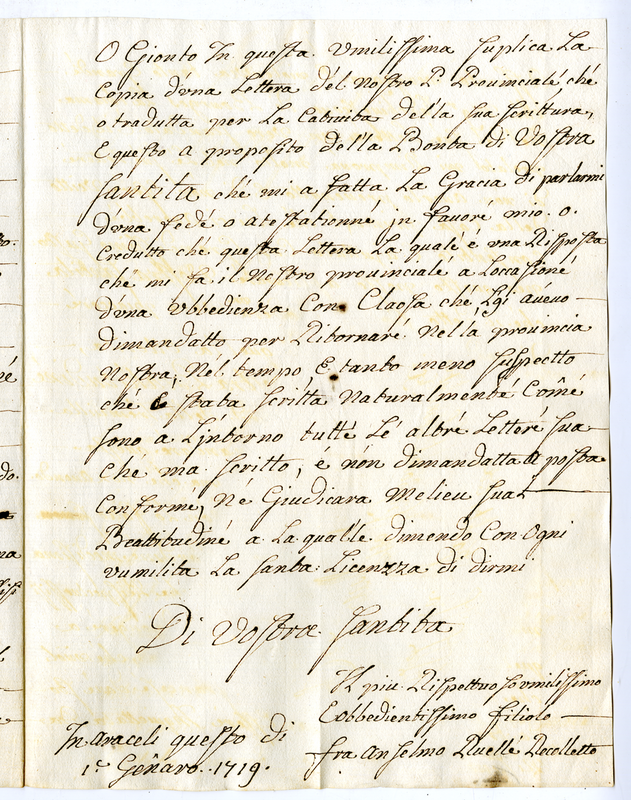 O Gionto In questa umilissima suplica La
Copia d'una Lettera dél Nostro P: Provincialé, ché
o tradutta per La Cativita della sua scrittura,
E questo a proposito della Bonta di Vostra
santita ché mi a fatta La Gracia di parlarmi
d'una fedé o atestationné jn favoré mio. o.
Credutto ché questa Lettera La qualé é una Risposta
ché mi fa il Nostro provincialé a Loccasioné
d'una Ubbedienza Con Claosa ché Lgi avevo
dimandatto per Ritornaré Nella provincia
Nostra, Nél tempo, E tanto meno suspectto
ché E stata scritta Naturalmenté Comé
sono a L'intorno tutté Lé altré Letteré sua
ché ma scritto, é nón dimandatta a posta
Conformé, Né Giudicara Melieu sua
Beattitudiné a La quallé dimendo Con Ogni
vumilita La santa Licenzza di dirmi
Di Vostra santita
Il piu Rispettuoso umilissimo
Eobbedientissimo filiolo
fra Anselmo Ruellé Recolletto
In Araceli questo di
1º Genaro. 1719.
ro.
né
do.
na